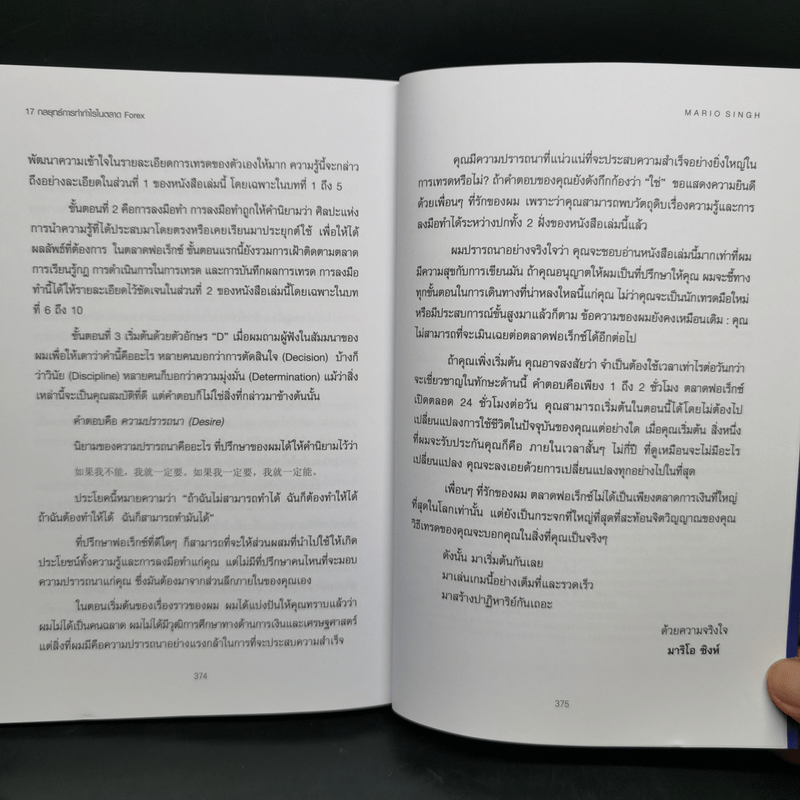 17 กลยุทธ์การทำกำไรในตลาด Forex
พัฒนาความเข้าใจในรายละเอียดการเทรดของตัวเองให้มาก ความรู้นี้จะกล่าว
ถึงอย่างละเอียดในส่วนที่ 1 ของหนังสือเล่มนี้ โดยเฉพาะในบทที่ 1 ถึง 5
ขั้นตอนที่ 2 คือการลงมือทำ การลงมือทำถูกให้คำนิยามว่า ศิลปะแห่ง
การนำความรู้ที่ได้ประสบมาโดยตรงหรือเคยเรียนมาประยุกต์ใช้ เพื่อให้ได้
ผลลัพธ์ที่ต้องการ ในตลาดฟอเร็กซ์ ขั้นตอนแรกนี้ยังรวมการเฝ้าติดตามตลาด
การเรียนรู้กฎ การดำเนินการในการเทรด และการบันทึกผลการเทรด การลงมือ
ทำนี้ได้ให้รายละเอียดไว้ชัดเจนในส่วนที่ 2 ของหนังสือเล่มนี้โดยเฉพาะในบท
ที่ 6 ถึง 10
ขั้นตอนที่ 3 เริ่มต้นด้วยตัวอักษร "D" เมื่อผมถามผู้ฟังในสัมมนาของ
ผมเพื่อให้เดาว่าคำนี้คืออะไร หลายคนบอกว่าการตัดสินใจ (Decision) บ้างก็
ว่าวินัย (Discipline) หลายคนก็บอกว่าความมุ่งมั่น (Determination) แม้ว่าสิ่ง
เหล่านี้จะเป็นคุณสมบัติที่ดี แต่คำตอบก็ไม่ใช่สิ่งที่กล่าวมาข้างต้นนั้น
คำตอบคือ ความปรารถนา (Desire)
นิยามของความปรารถนาคืออะไร ที่ปรึกษาของผมได้ให้คำนิยามไว้ว่า
如果我不能，我就一定要。如果我一定要，我就一定能。
ประโยคนี้หมายความว่า "ถ้าฉันไม่สามารถทำได้ ฉันก็ต้องทำให้ได้
ถ้าฉันต้องทำให้ได้ ฉันก็สามารถทำมันได้"
ที่ปรึกษาฟอเร็กซ์ที่ดีใดๆ ก็สามารถที่จะให้ส่วนผสมที่นำไปใช้ให้เกิด
ประโยชน์ทั้งความรู้และการลงมือทำแก่คุณ แต่ไม่มีที่ปรึกษาคนไหนที่จะมอบ
ความปรารถนาแก่คุณ ซึ่งมันต้องมาจากส่วนลึกภายในของคุณเอง
ในตอนเริ่มต้นของเรื่องราวของผม ผมได้แบ่งปันให้คุณทราบแล้วว่า
ผมไม่ได้เป็นคนฉลาด ผมไม่ได้มีวุฒิการศึกษาทางด้านการเงินและเศรษฐศาสตร์
แต่สิ่งที่ผมมีคือความปรารถนาอย่างแรงกล้าในการที่จะประสบความสำเร็จ
374
MARIO SINGH
คุณมีความปรารถนาที่แน่วแน่ที่จะประสบความสำเร็จอย่างยิ่งใหญ่ใน
การเทรดหรือไม่? ถ้าคำตอบของคุณยังดังกึกก้องว่า "ใช่" ขอแสดงความยินดี
ด้วยเพื่อนๆ ที่รักของผม เพราะว่าคุณสามารถพบวัตถุดิบเรื่องความรู้และการ
ลงมือทำได้ระหว่างปกทั้ง 2 ฝั่งของหนังสือเล่มนี้แล้ว
ผมปรารถนาอย่างจริงใจว่า คุณจะชอบอ่านหนังสือเล่มนี้มากเท่าที่ผม
มีความสุขกับการเขียนมัน ถ้าคุณอนุญาตให้ผมเป็นที่ปรึกษาให้คุณ ผมจะชี้ทาง
ทุกขั้นตอนในการเดินทางที่น่าหลงใหลนี้แก่คุณ ไม่ว่าคุณจะเป็นนักเทรดมือใหม่
หรือมีประสบการณ์ขั้นสูงมาแล้วก็ตาม ข้อความของผมยังคงเหมือนเดิม : คุณ
ไม่สามารถที่จะเมินเฉยต่อตลาดฟอเร็กซ์ได้อีกต่อไป
ถ้าคุณเพิ่งเริ่มต้น คุณอาจสงสัยว่า จำเป็นต้องใช้เวลาเท่าไรต่อวันกว่า
จะเชี่ยวชาญในทักษะด้านนี้ คำตอบคือเพียง 1 ถึง 2 ชั่วโมง ตลาดฟอเร็กซ์
เปิดตลอด 24 ชั่วโมงต่อวัน คุณสามารถเริ่มต้นในตอนนี้ได้โดยไม่ต้องไป
เปลี่ยนแปลงการใช้ชีวิตในปัจจุบันของคุณแต่อย่างใด เมื่อคุณเริ่มต้น สิ่งหนึ่ง
ที่ผมจะรับประกันคุณก็คือ ภายในเวลาสั้นๆ ไม่กี่ปี ที่ดูเหมือนจะไม่มีอะไร
เปลี่ยนแปลง คุณจะลงเอยด้วยการเปลี่ยนแปลงทุกอย่างไปในที่สุด
เพื่อนๆ ที่รักของผม ตลาดฟอเร็กซ์ไม่ได้เป็นเพียงตลาดการเงินที่ใหญ่
ที่สุดในโลกเท่านั้น แต่ยังเป็นกระจกที่ใหญ่ที่สุดที่สะท้อนจิตวิญญาณของคุณ
วิธีเทรดของคุณจะบอกคุณในสิ่งที่คุณเป็นจริงๆ
ดังนั้น มาเริ่มต้นกันเลย
มาเล่นเกมนี้อย่างเต็มที่และรวดเร็ว
มาสร้างปาฏิหาริย์กันเถอะ
ด้วยความจริงใจ
มาริโอ ซิงห์
375